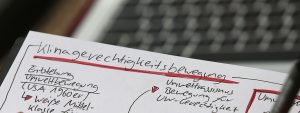 Klimagerechtigkeitsbewegung
Entstehung
Umweltbewegung
(USA 1960er
→ Weiße Mittel-
klasse für
Umweltrassismus
→ Bewegung für
Uw-Gerechtigkeit